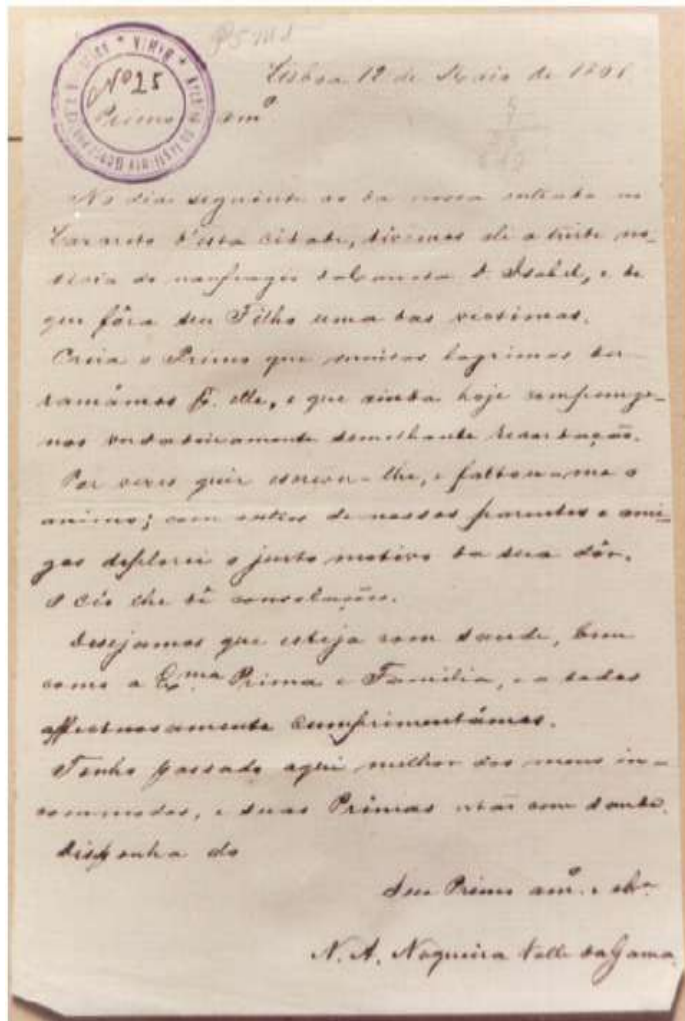 Nº 25
Lisboa 12 de Maio de
Primo amº
No dia seguinte ao da nossa entrada no
Lazareto d'esta cidade, tivemos ali a triste no-
ticia do naufragio da Canôa D Isabel, e de
que fôra seu Filho uma das victimas.
Creia o Primo que muitas lagrimas der-
ramámos p. elle, e que ainda hoje compunge-
nos verdadeiramente semelhante recordação.
Por vezes quiz escrever-lhe, e faltou-me o
animo; com outros de nossos parentes e ami-
gos deplorei o justo motivo da sua dôr.
O céo lhe dê consolações.
Desejamos que esteja com saude, bem
como a Exma Prima e Familia, e a todos
affectuosamente cumprimentâmos.
Tenho passado aqui melhor dos meus in-
commodos, e suas Primas estão com saude.
Disponha do
Seu Primo amº. e
N. A. Nogueira Valle da Gama